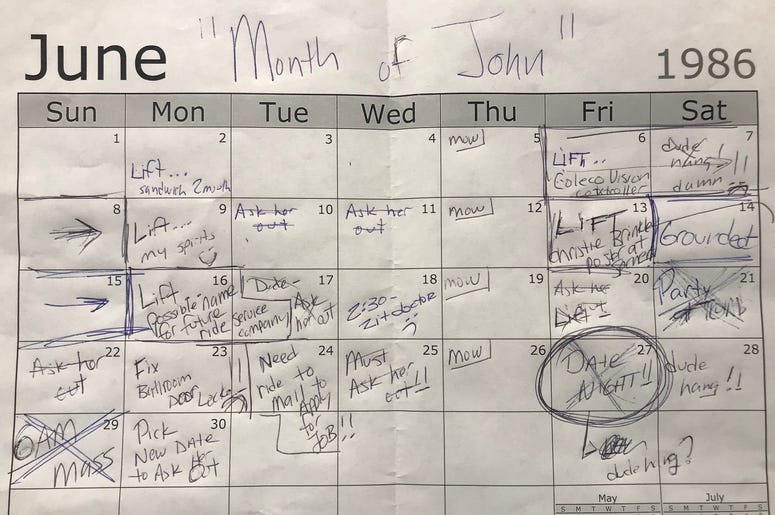 June "Month of John" 1986
Sun Mon Tue Wed Thu Fri Sat
1
2
Lift...
sandwich 2 mouth
3
4
5
mow
6
LIFT..
Coleco Vision
controller
7
dude
hang!
damn
8
9
Lift...
my spirits
10
Ask her
out
11
Ask her
out
12
mow
13
LIFT
Christie Brinkley
poster at
14
Grounded
15
16
Lift
Possible name
for future
ride service
company
17
Dude-
Ask
her out
18
2:30-
Zit doctor
19
mow
20
Ask her
21
Party
22
Ask her
out
23
Fix
Bathroom
Door Lock
24
Need
ride to
mall to
Apply
for
JOB!!
25
Must
Ask her
out!!
26
mow
27
DATE
NIGHT!!
28
dude
hang!!
29
Mass
30
Pick
New Date
to Ask Her
Out
dude hang?
May July
S M T W T F S S M T W T F S